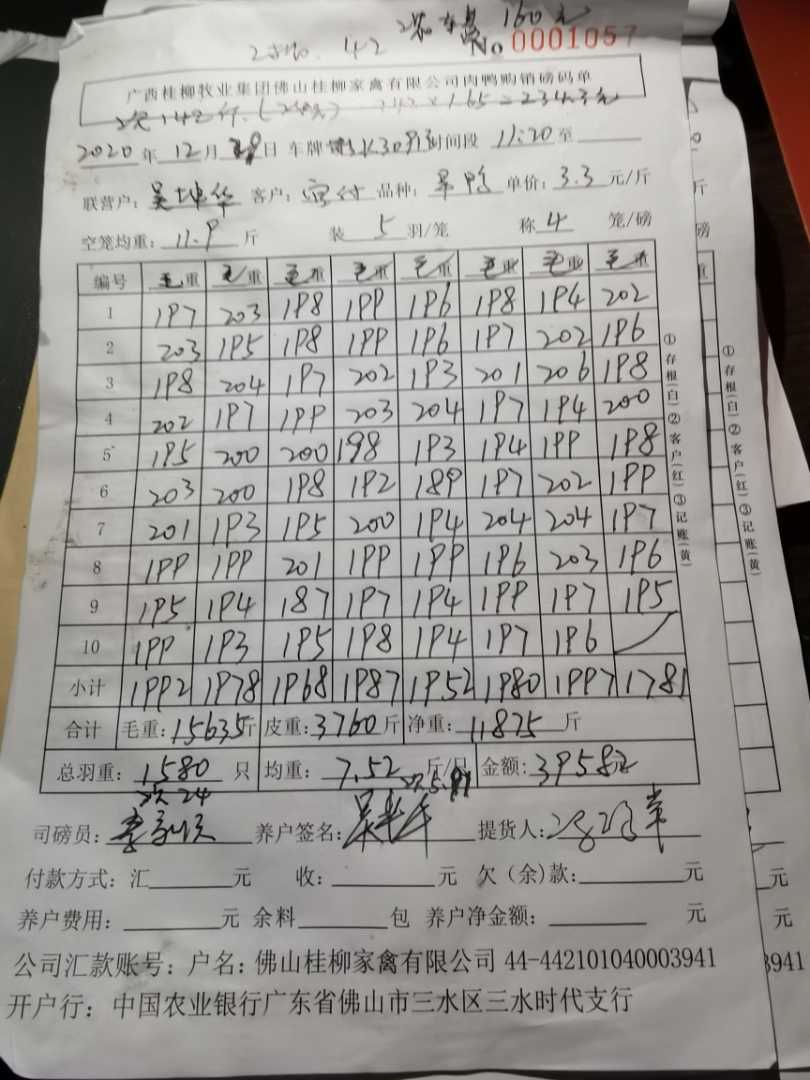 160元
No 0001057
广西桂柳牧业集团佛山桂柳家禽有限公司肉鸭购销磅码单
142 × 165 =
2020 年 12 月 日 车牌 时间段 11:20 至
联营户: 吴坤华 客户: 品种: 单价: 3.3 元/斤
空笼均重: 11.9 斤 装 5 羽/笼 称 4 笼/磅
编号 毛重 毛重 毛重 毛重 毛重 毛重 毛重 毛重
1 197 203 198 199 196 198 194 202
2 203 195 198 199 196 197 202 196
3 198 204 197 202 193 201 206 198
4 202 197 199 203 204 197 194 200
5 195 200 200 198 193 194 199 198
6 203 200 198 192 189 197 202 199
7 201 193 195 200 194 204 204 197
8 199 199 201 199 199 196 203 196
9 195 194 187 197 194 199 197 195
10 199 193 195 198 194 197 196
小计 1992 1978 1968 1987 1952 1980 1997 1781
合计 毛重: 15635 斤 皮重: 3760 斤 净重: 11875 斤
总羽重: 1580 只 均重: 7.52 斤/只 金额: 39582
次 24 次 5.91
司磅员: 养户签名: 提货人:
付款方式: 汇 元 收: 元 欠(余)款: 元
养户费用: 元 余料 包 养户净金额: 元
公司汇款账号: 户名: 佛山桂柳家禽有限公司 44-442101040003941
开户行: 中国农业银行广东省佛山市三水区三水时代支行
①存根(白)②客户(红)③记账(黄)
①存根(白)②客户(红)③记账(黄)
斤
磅
元
元
3941